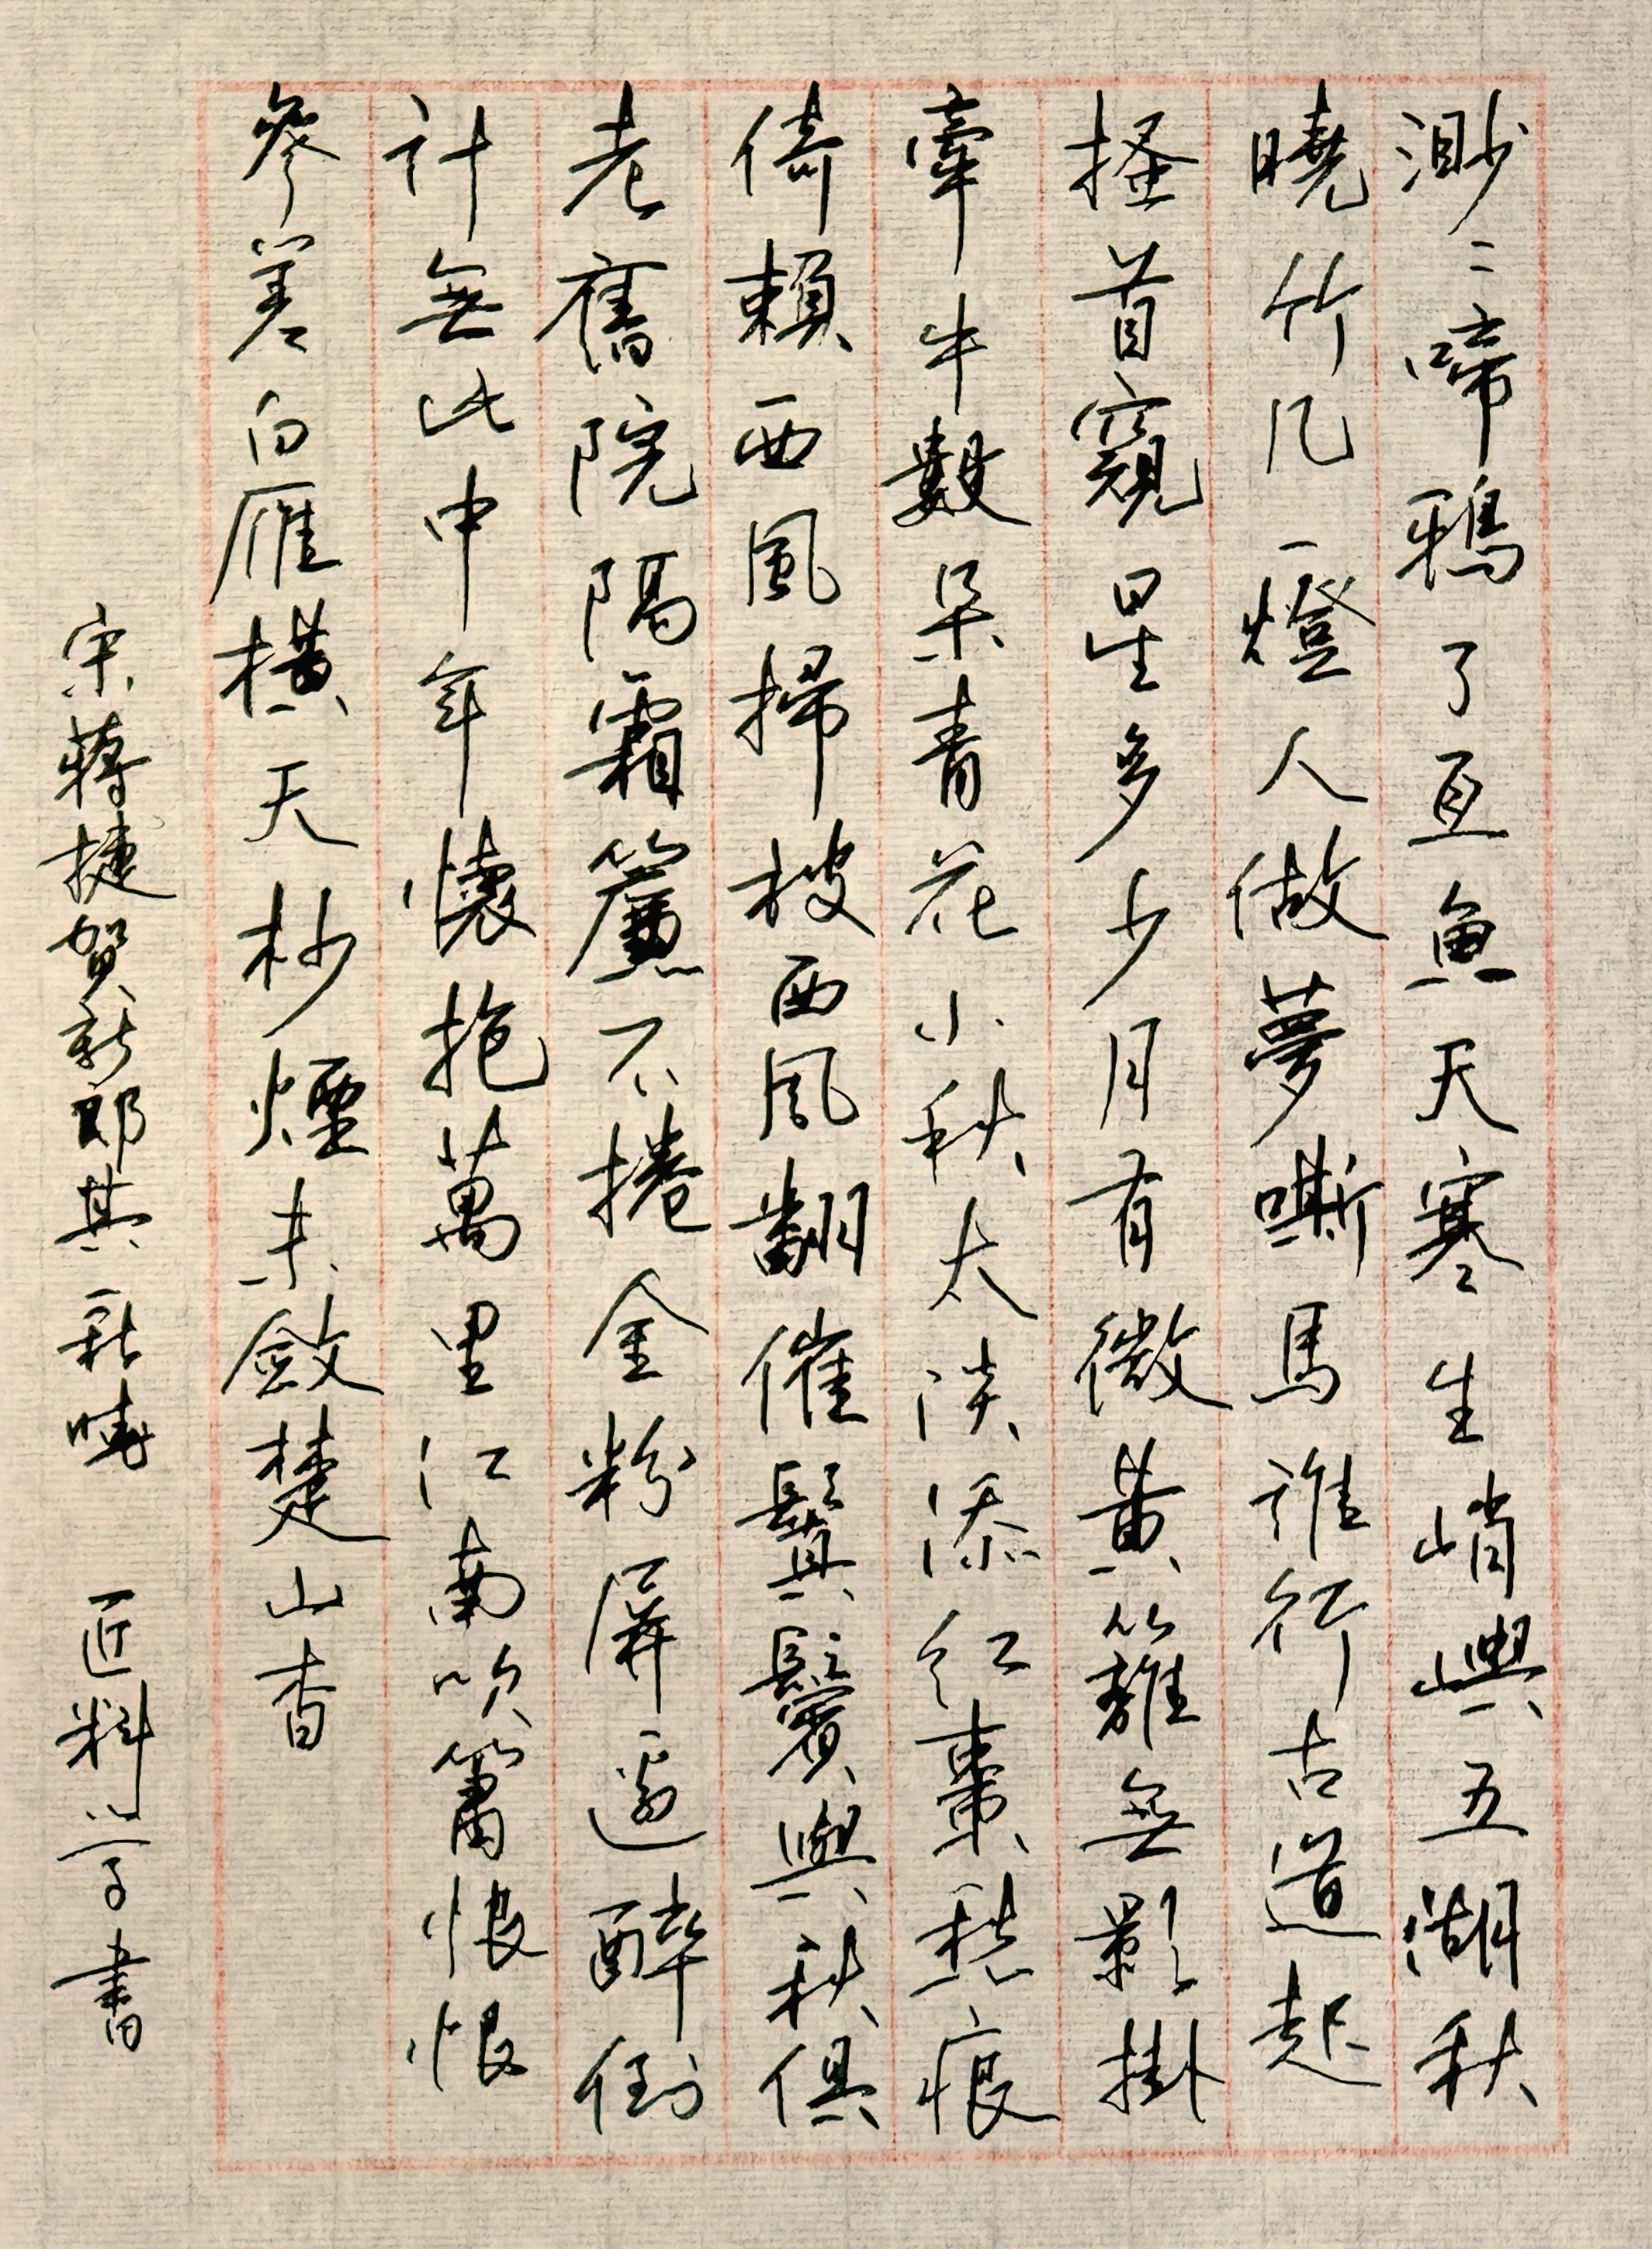 渺〻啼鴉了亘魚天寒生峭嶼五湖秋
曉竹几一燈人做夢嘶馬誰行古道起
搔首窺星多少月有微黄籬無影掛
牽牛數朵青花小秋太淡添紅棗愁痕
倚賴西風掃被西風翻催鬒鬢與秋俱
老舊院隔霜簾不捲金粉屏邊醉倒
計無此中年懷抱萬里江南吹簫恨恨
參差白雁横天杪煙未斂楚山杳
宋蔣捷賀新郎其一秋曉 匠料学書